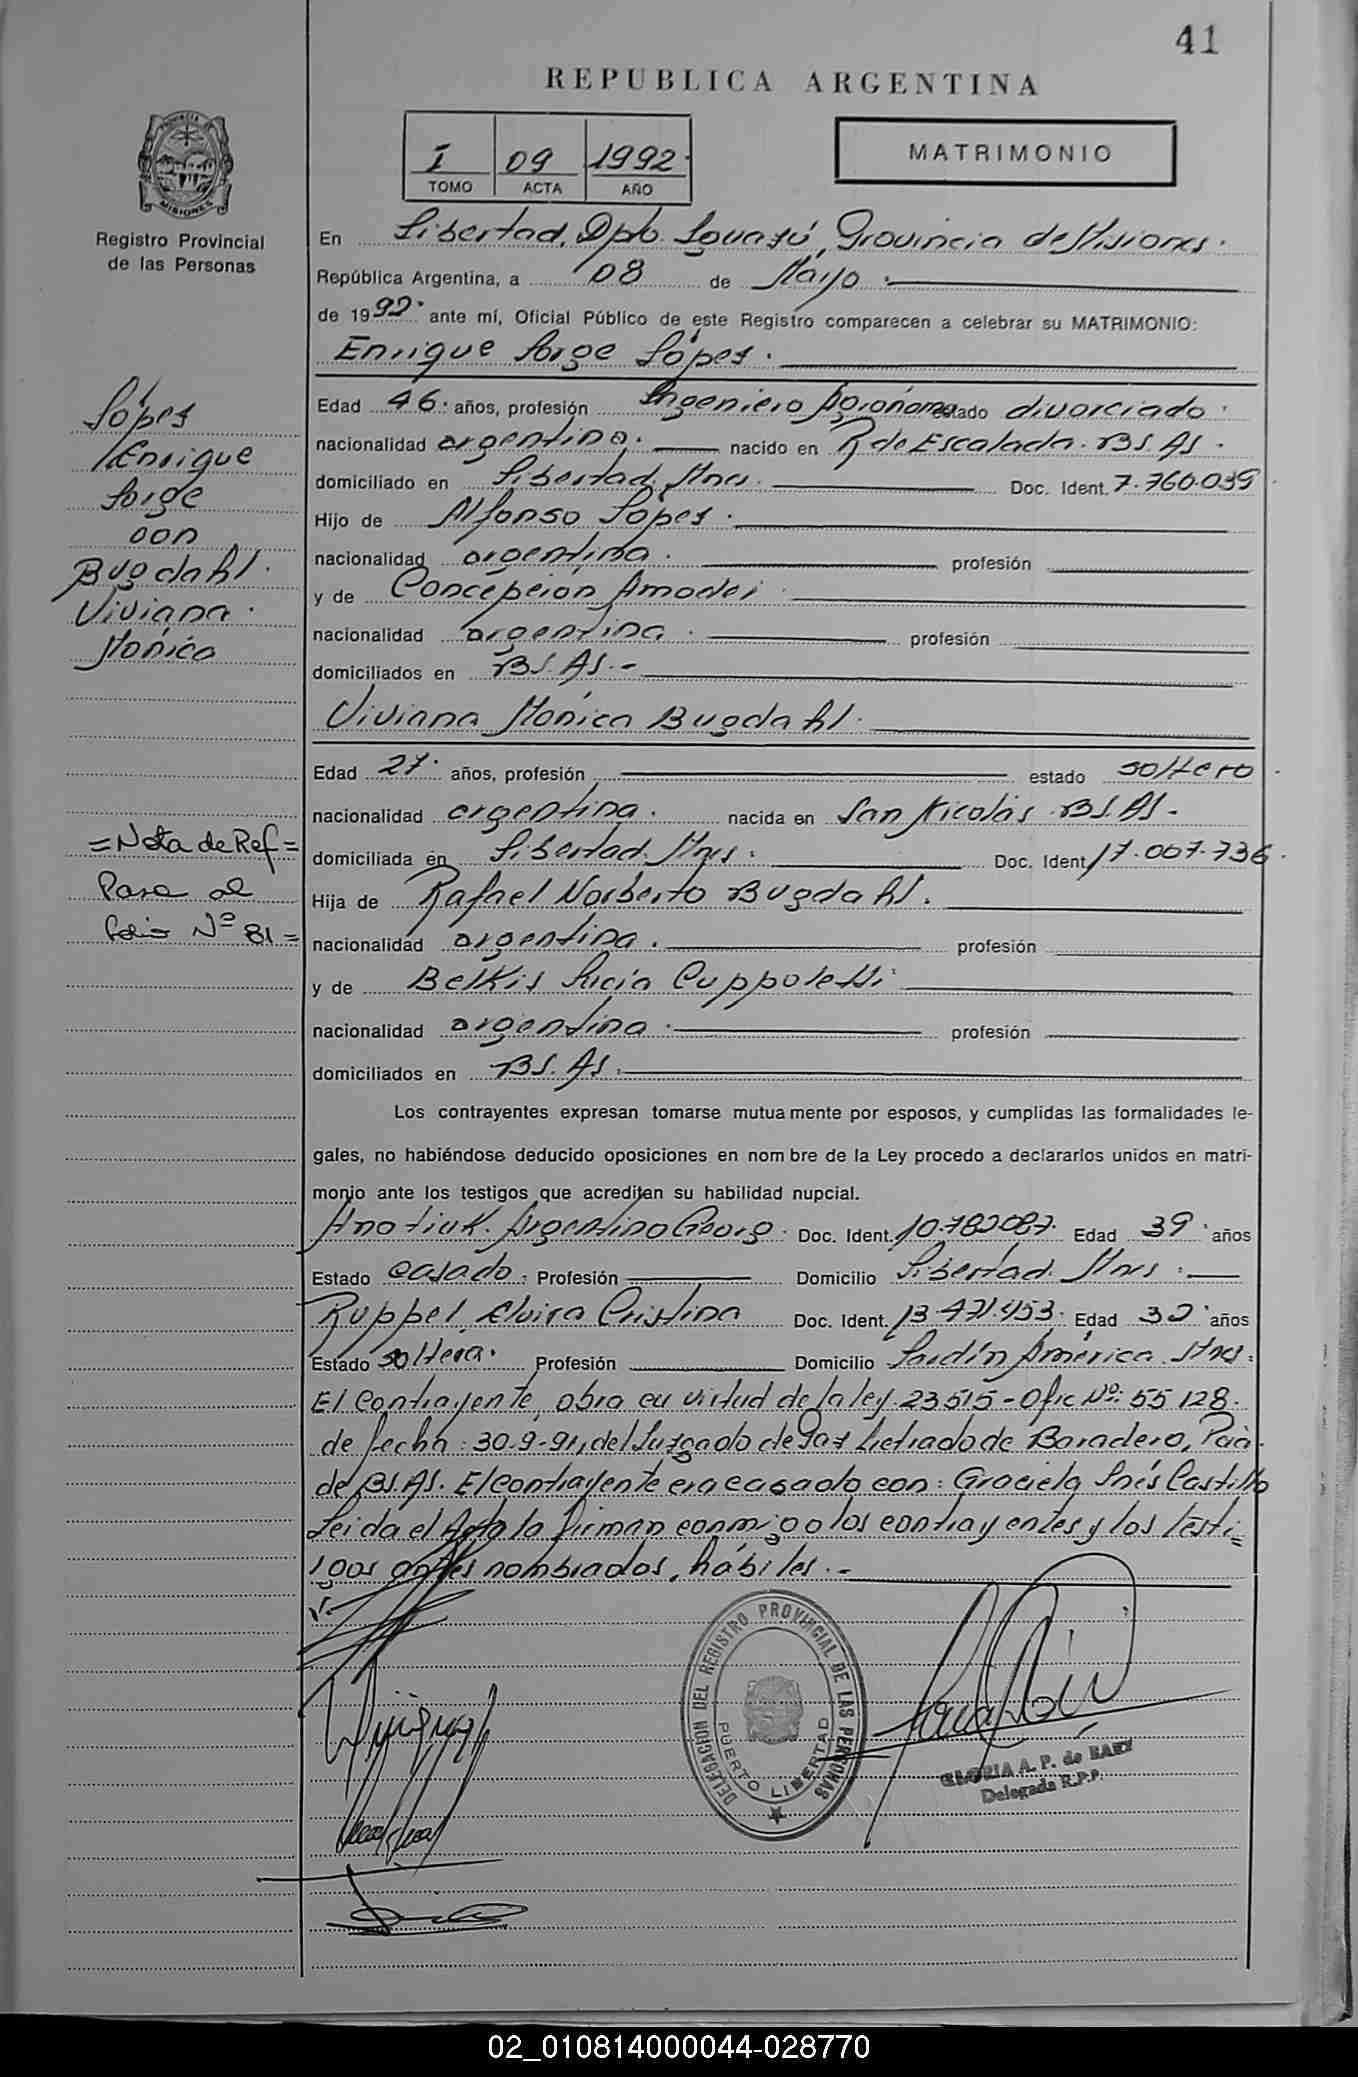 41
REPUBLICA ARGENTINA
I 09 1992
TOMO ACTA AÑO
MATRIMONIO
PROVINCIA DE
MISIONES
Registro Provincial
de las Personas
En Libertad, Dpto. Iguazú, Provincia de Misiones.
República Argentina, a 08 de Mayo
de 1992 ante mí, Oficial Público de este Registro comparecen a celebrar su MATRIMONIO:
Enrique Jorge López.
López
Enrique
Jorge
con
Bugdahl.
Viviana
Mónica
Edad 46 años, profesión Ingeniero Agrónomo estado divorciado
nacionalidad argentina. nacido en R. de Escalada. BS. AS.
domiciliado en Libertad, Mnes. Doc. Ident. 7.760.039
Hijo de Alfonso López.
nacionalidad argentina. profesión
y de Concepción Amodei
nacionalidad argentina. profesión
domiciliados en BS. AS.-
Viviana Mónica Bugdahl.
Edad 27 años, profesión estado soltero
nacionalidad argentina. nacida en San Nicolás BS. AS.
=Nota de Ref=
Pase al
folio Nº 81=
domiciliada en Libertad, Mnes. Doc. Ident. 17.007.736
Hija de Rafael Norberto Bugdahl.
nacionalidad argentina. profesión
y de Belkis Lucía Cuppoletti
nacionalidad argentina profesión
domiciliados en BS. AS.
Los contrayentes expresan tomarse mutuamente por esposos, y cumplidas las formalidades le-
gales, no habiéndose deducido oposiciones en nombre de la Ley procedo a declararlos unidos en matri-
monio ante los testigos que acreditan su habilidad nupcial.
Hnatiuk, Argentino Georg Doc. Ident. 10.782087 Edad 39 años
Estado casado. Profesión Domicilio Libertad. Mnes.
Ruppel, Elvira Cristina Doc. Ident. 13.471.453 Edad 32 años
Estado soltera. Profesión Domicilio Jardín América. Mnes.
El contrayente, obra en virtud de la ley 23515 - Ofic Nº: 55128.
de fecha: 30-9-91, del Juzgado de Paz Letrado de Baradero, Pcia
de BS. AS. El contrayente era casado con: Graciela Inés Castillo
Leida el Acta la firman conmigo los contrayentes y los testi=
gos antes nombrados, hábiles.-
DELEGACION DEL REGISTRO PROVINCIAL DE LAS PERSONAS
PUERTO LIBERTAD
GLORIA A. P. de BAEZ
Delegada R.P.P.
02_010814000044-028770